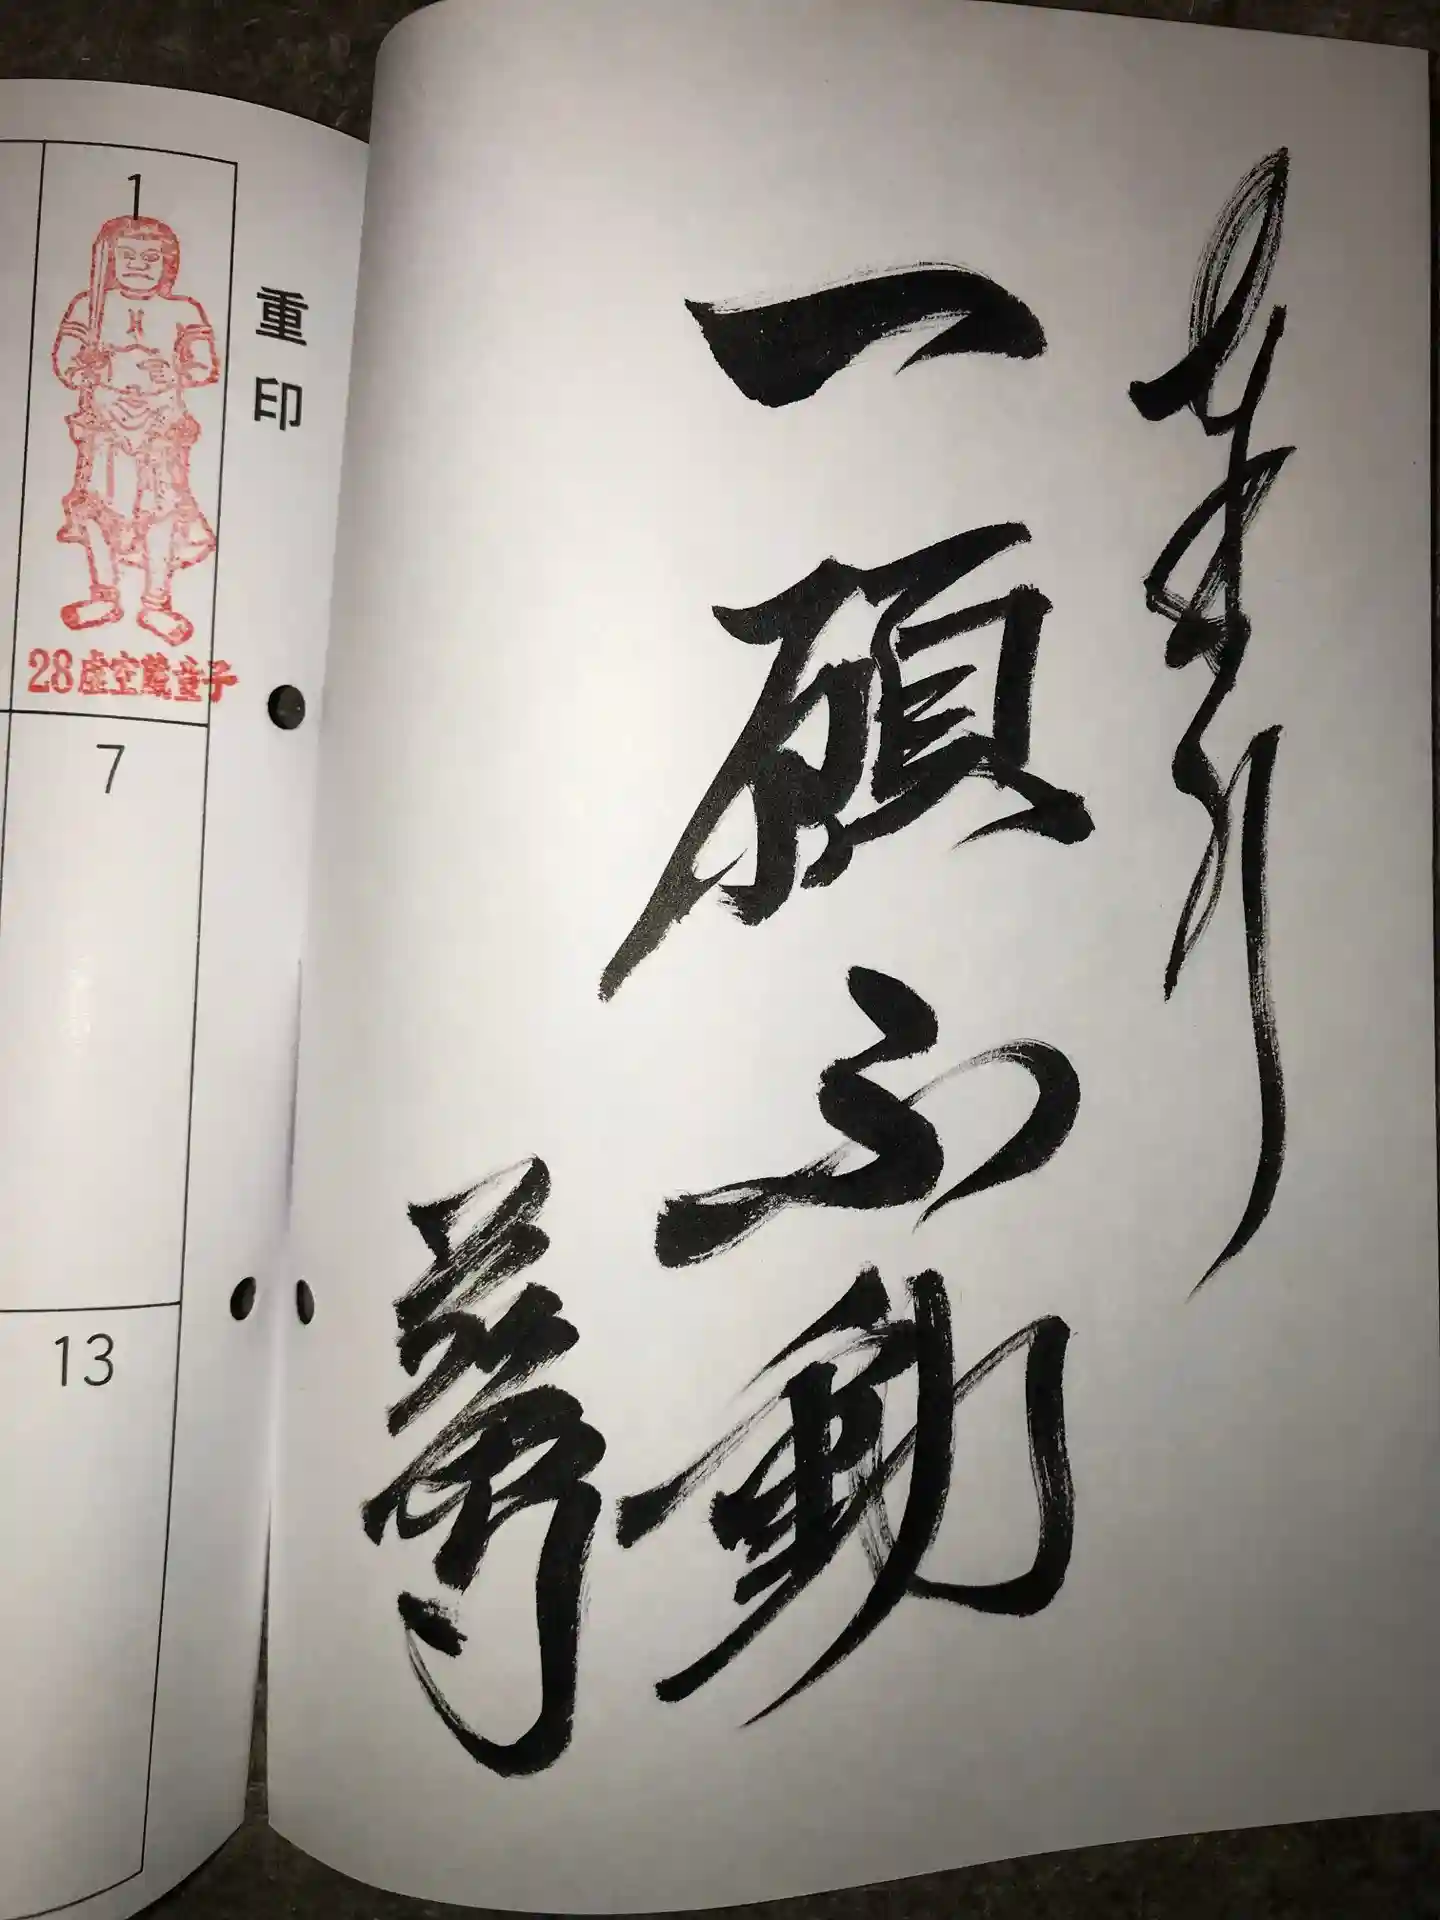 奉拝
一願不動
尊
重印
1
28虚空蔵童子
7
13